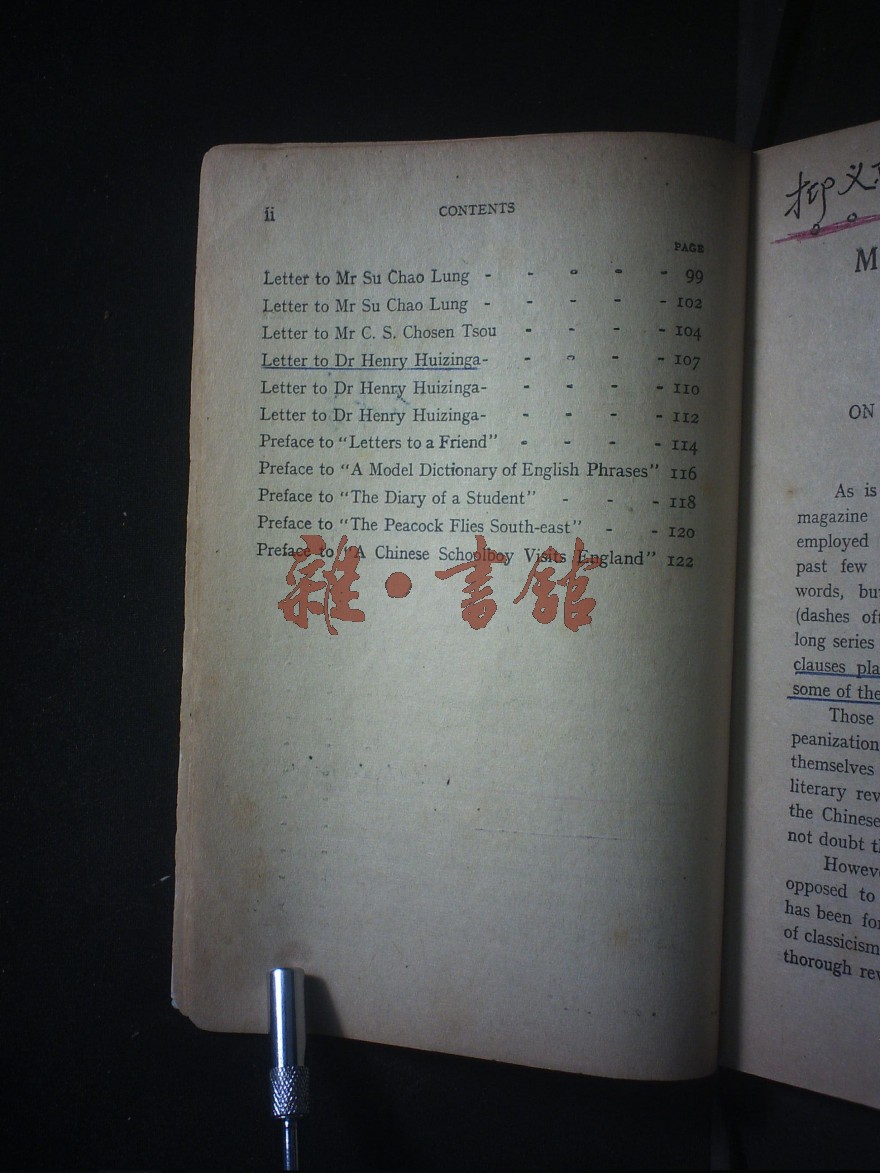 ii CONTENTS
PAGE
Letter to Mr Su Chao Lung - - - - - 99
Letter to Mr Su Chao Lung - - - - - 102
Letter to Mr C. S. Chosen Tsou - - - - 104
Letter to Dr Henry Huizinga- - - - - 107
Letter to Dr Henry Huizinga- - - - - 110
Letter to Dr Henry Huizinga- - - - - 112
Preface to "Letters to a Friend" - - - - 114
Preface to "A Model Dictionary of English Phrases" 116
Preface to "The Diary of a Student" - - - 118
Preface to "The Peacock Flies South-east" - - 120
Preface to "A Chinese Schoolboy Visits England" 122
雜·書館
M
ON
As is
magazine
employed
past few
words,
(dashes
long series
clauses
some of the
Those
peanization
themselves
literary
the Chinese
not doubt
opposed to
has been
of classicism
thorough